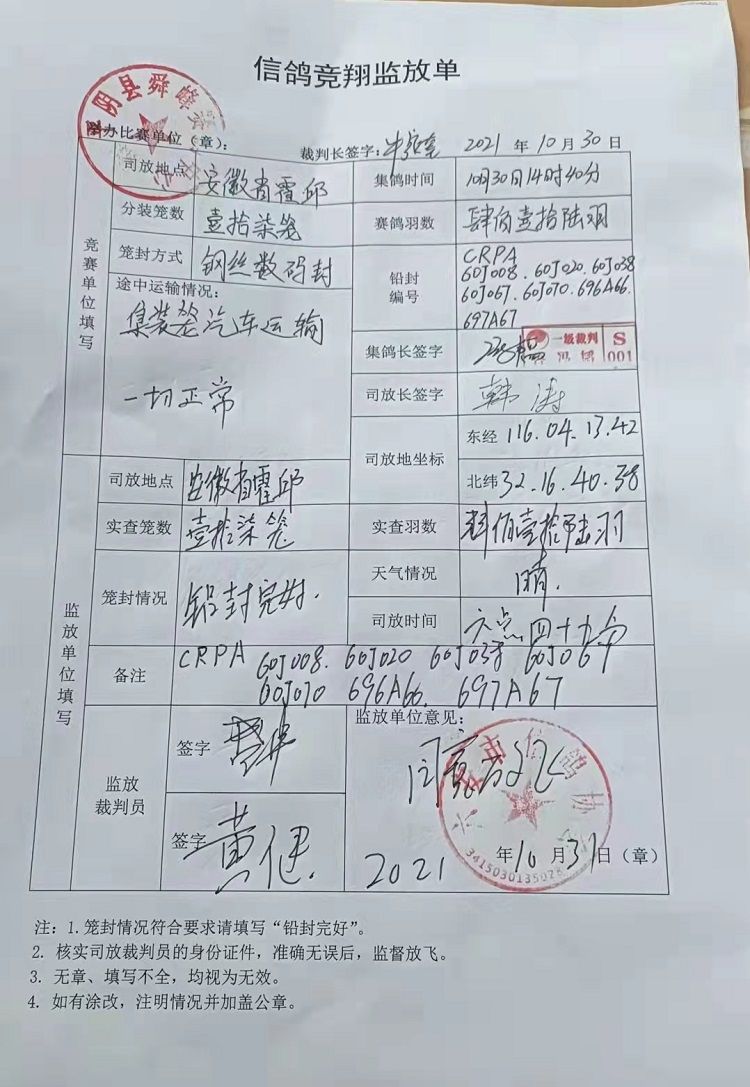 信鸽竞翔监放单
阴县舜峰
办比赛单位（章）：
裁判长签字：
2021 年 10 月 30 日
竞赛单位填写
司放地点 安徽省霍邱 集鸽时间 10月30日14时40分
分装笼数 壹拾柒笼 赛鸽羽数 肆佰壹拾陆羽
笼封方式 钢丝数码封 铅封编号 CRPA
60J008.60J020.60J038
60J067.60J070.696A66.
697A67
途中运输情况：
集装笼汽车运输
一切正常
集鸽长签字 一级裁判 S
001
司放长签字 韩涛
司放地坐标 东经 116.04.13.42
北纬 32.16.40.38
监放单位填写
司放地点 安徽省霍邱
实查笼数 壹拾柒笼 实查羽数 肆佰壹拾陆羽
笼封情况 铅封完好. 天气情况 晴.
司放时间 六点四十九分
备注 CRPA 60J008. 60J020 60J038 60J067
60J070 696A66. 697A67
监放裁判员
签字
签字 黄健
监放单位意见：
同意放飞
市信鸽协
3415030135028
2021 年 10 月 31 日（章）
注：1. 笼封情况符合要求请填写“铅封完好”。
2. 核实司放裁判员的身份证件，准确无误后，监督放飞。
3. 无章、填写不全，均视为无效。
4. 如有涂改，注明情况并加盖公章。